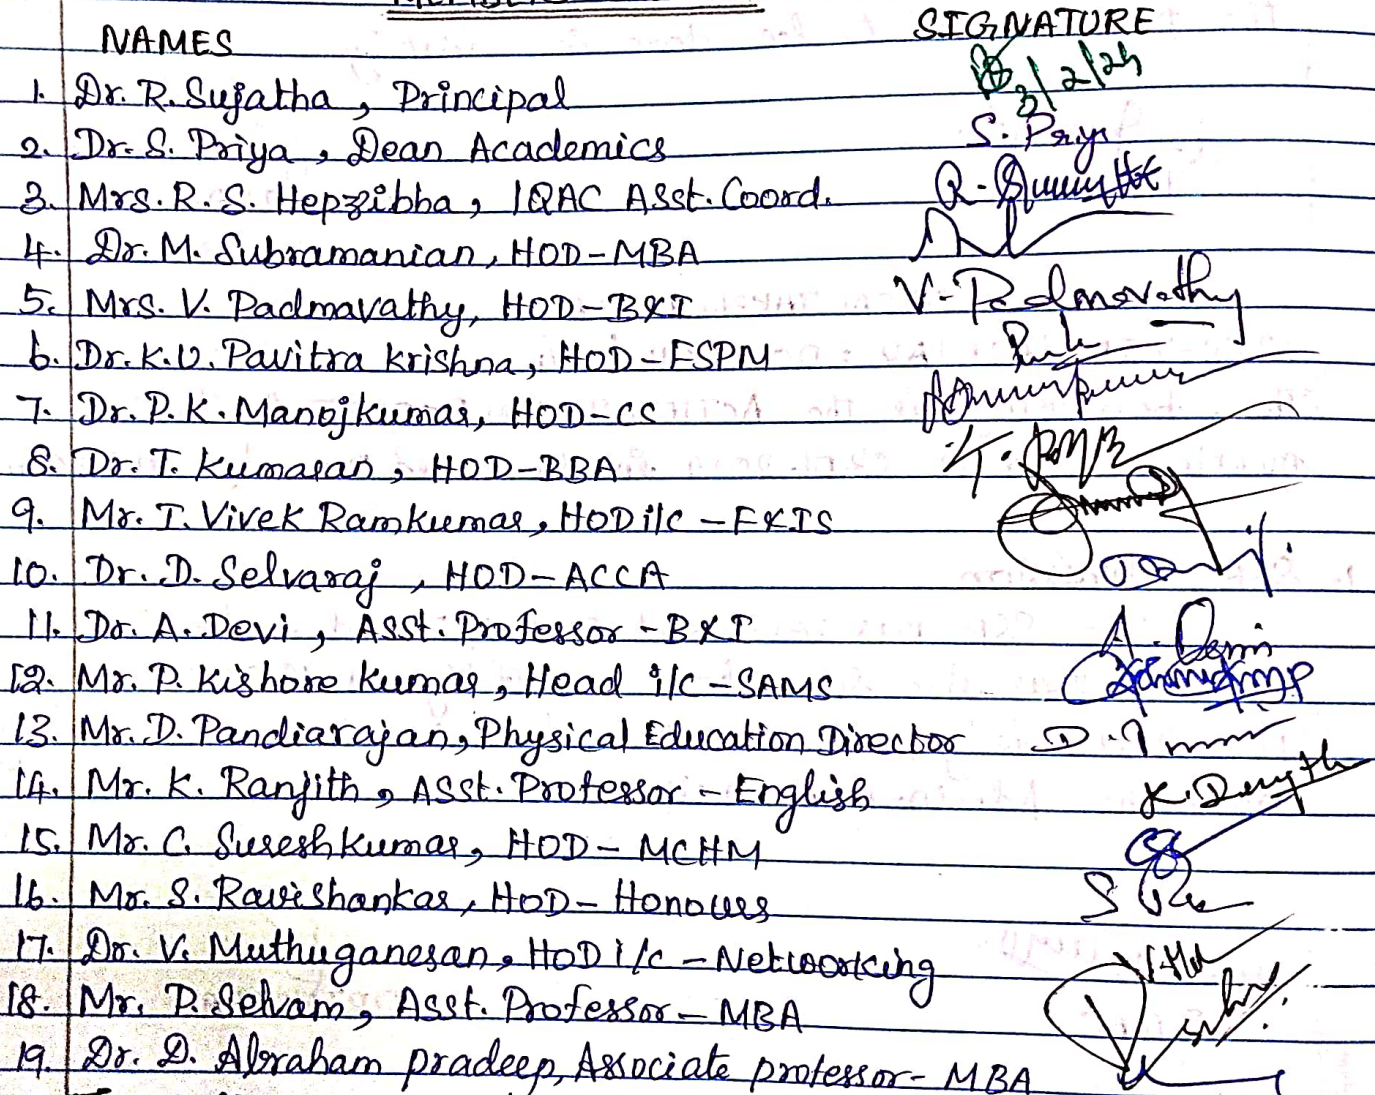 NAMES SIGNATURE
1. Dr. R. Sujatha, Principal 3/2/24
2. Dr. S. Priya, Dean Academics S. Priya
3. Mrs. R. S. Hepzibba, IQAC Asst. Coord.
4. Dr. M. Subramanian, HOD-MBA
5. Mrs. V. Padmavathy, HOD-B&I V. Padmavathy
6. Dr. K.V. Pavitra Krishna, HOD-FSPM
7. Dr. P. K. Manojkumar, HOD-CS
8. Dr. T. Kumaran, HOD-BBA
9. Mr. T. Vivek Ramkumar, HOD i/c - F&IS
10. Dr. D. Selvaraj, HOD-ACCA
11. Dr. A. Devi, Asst. Professor - B&I A. Devi
12. Mr. P. Kishore Kumar, Head i/c - SAMS
13. Mr. D. Pandiarajan, Physical Education Director
14. Mr. K. Ranjith, Asst. Professor - English
15. Mr. C. Sureshkumar, HOD - MCHM
16. Mr. S. Ravishankar, HOD - Honours
17. Dr. V. Muthuganesan, HOD i/c - Networking
18. Mr. P. Selvam, Asst. Professor - MBA
19. Dr. D. Abraham pradeep, Associate professor - MBA